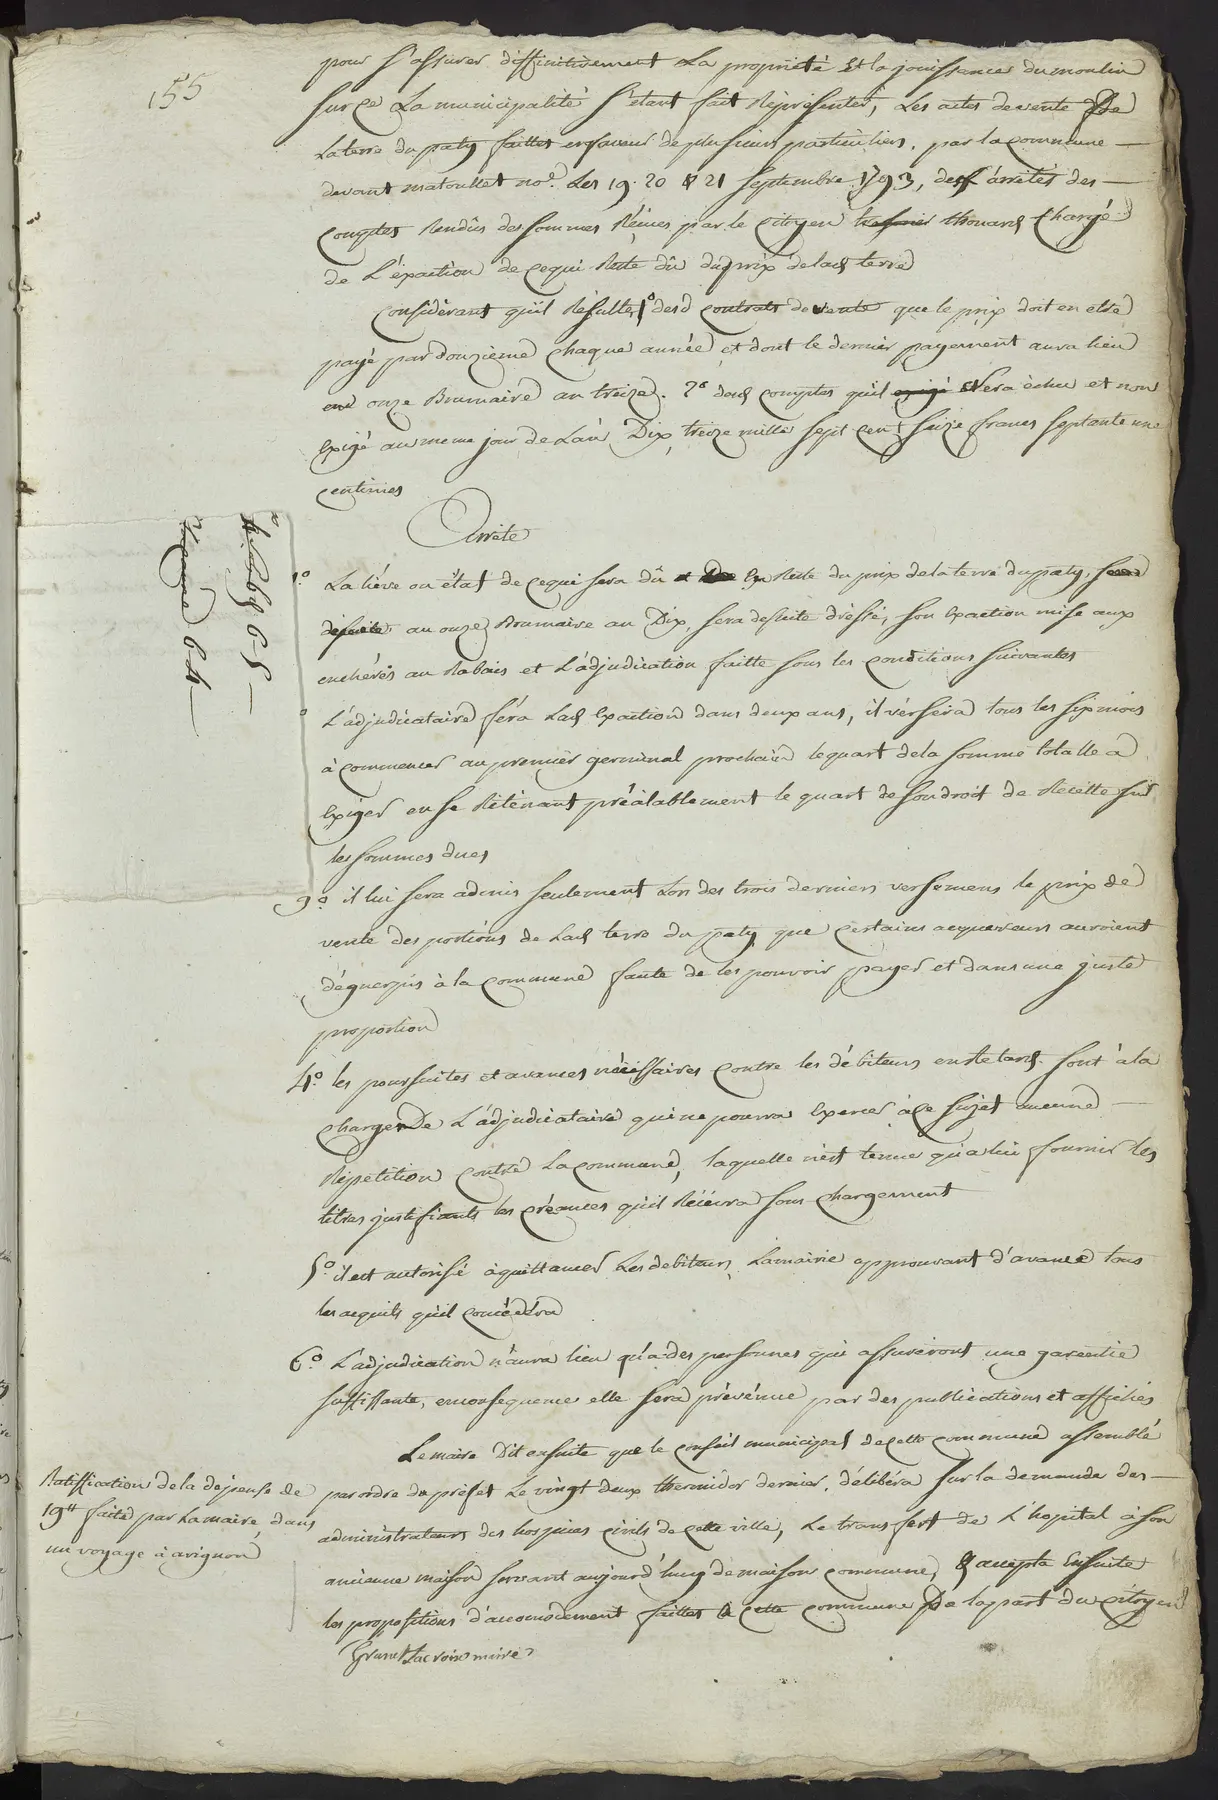 155
pour s'assurer diffinitivement La propriété Et la jouissance du moulin
sur ce La municipalité s'étant fait Réprésenter, Les actes de vente de
La terre du paty faittes en faveur de plusieurs particuliers, par la commune —
devant matoullet no.e Les 19. 20 & 21 septembre 1793, des arrêtés des —
comptes Rendûs des sommes Réçues par le Citoyen thouard Chargé
de L'éxaction de ce qui Reste dû du prix de lad terre
Considérant qu'il Résulte, 1° desd contrats de vente que le prix doit en etre
payé par douzieme chaque année, et dont le dernier payement aura lieu
onze Brumaire an treize. 2° desd comptes qu'il sera échu et non
Exigé au meme jour de L'an Dix, treize mille sept cent seize francs septante une
centimes
Arrête
1° La liéve ou état de ce qui sera dû En Reste du prix de la terre du paty,
au onze Brumaire an Dix, sera desuite dréssé, son Exaction mise aux
enchéres au Rabais et L'adjudication faitte sous les conditions suivantes
° L'adjudicataire féra Lad Exaction dans deux ans, il vérsera tous les six mois
à commencer au premier germinal prochain le quart de la somme totalle a
Exiger en se Réténant préalablement le quart de son droit de Récette sur
les sommes dues
3° il lui sera admis seulement Lors des trois derniers versemens le prix de
vente des portions de Lad terre du paty que certains acquereurs auroient
déguerpis à la commune faute de les pouvoir payer et dans une juste
proportion
4° les poursuites et avances nécéssaires contre les débiteurs en retard sont à la
charge De L'adjudicataire qui ne pourra Exercer à ce sujet aucune —
Répétition contre La commune, laquelle n'est tenue qu'a lui fournir les
titres justifiants les créances qu'il Récévra sous chargement
5° il est autorisé à quittancer Les debiteurs, La mairie approuvant d'avance tous
les acquits qu'il concédéra
6° L'adjudication n'aura lieu qu'a des personnes qui assureront une garentie
suffissante, en conséquence elle séra prévénue par des publications et affiches
Le maire Dit ensuite que le conseil municipal de cette commune assemblé
par ordre du préfet Le vingt deux thermidor dernier, délibéra sur la demande des —
administrateurs des hospices civils de cette ville, Le transfert de L'hopital à son
ancienne maison servant aujourd'huy de maison commune, & accepta Ensuite
les propositions d'accomodement faittes à cette commune De la part du Citoyen
Ratiffication de la depense de
19tt faite par La maire, dans
un voyage à avignon
Lacroix maire